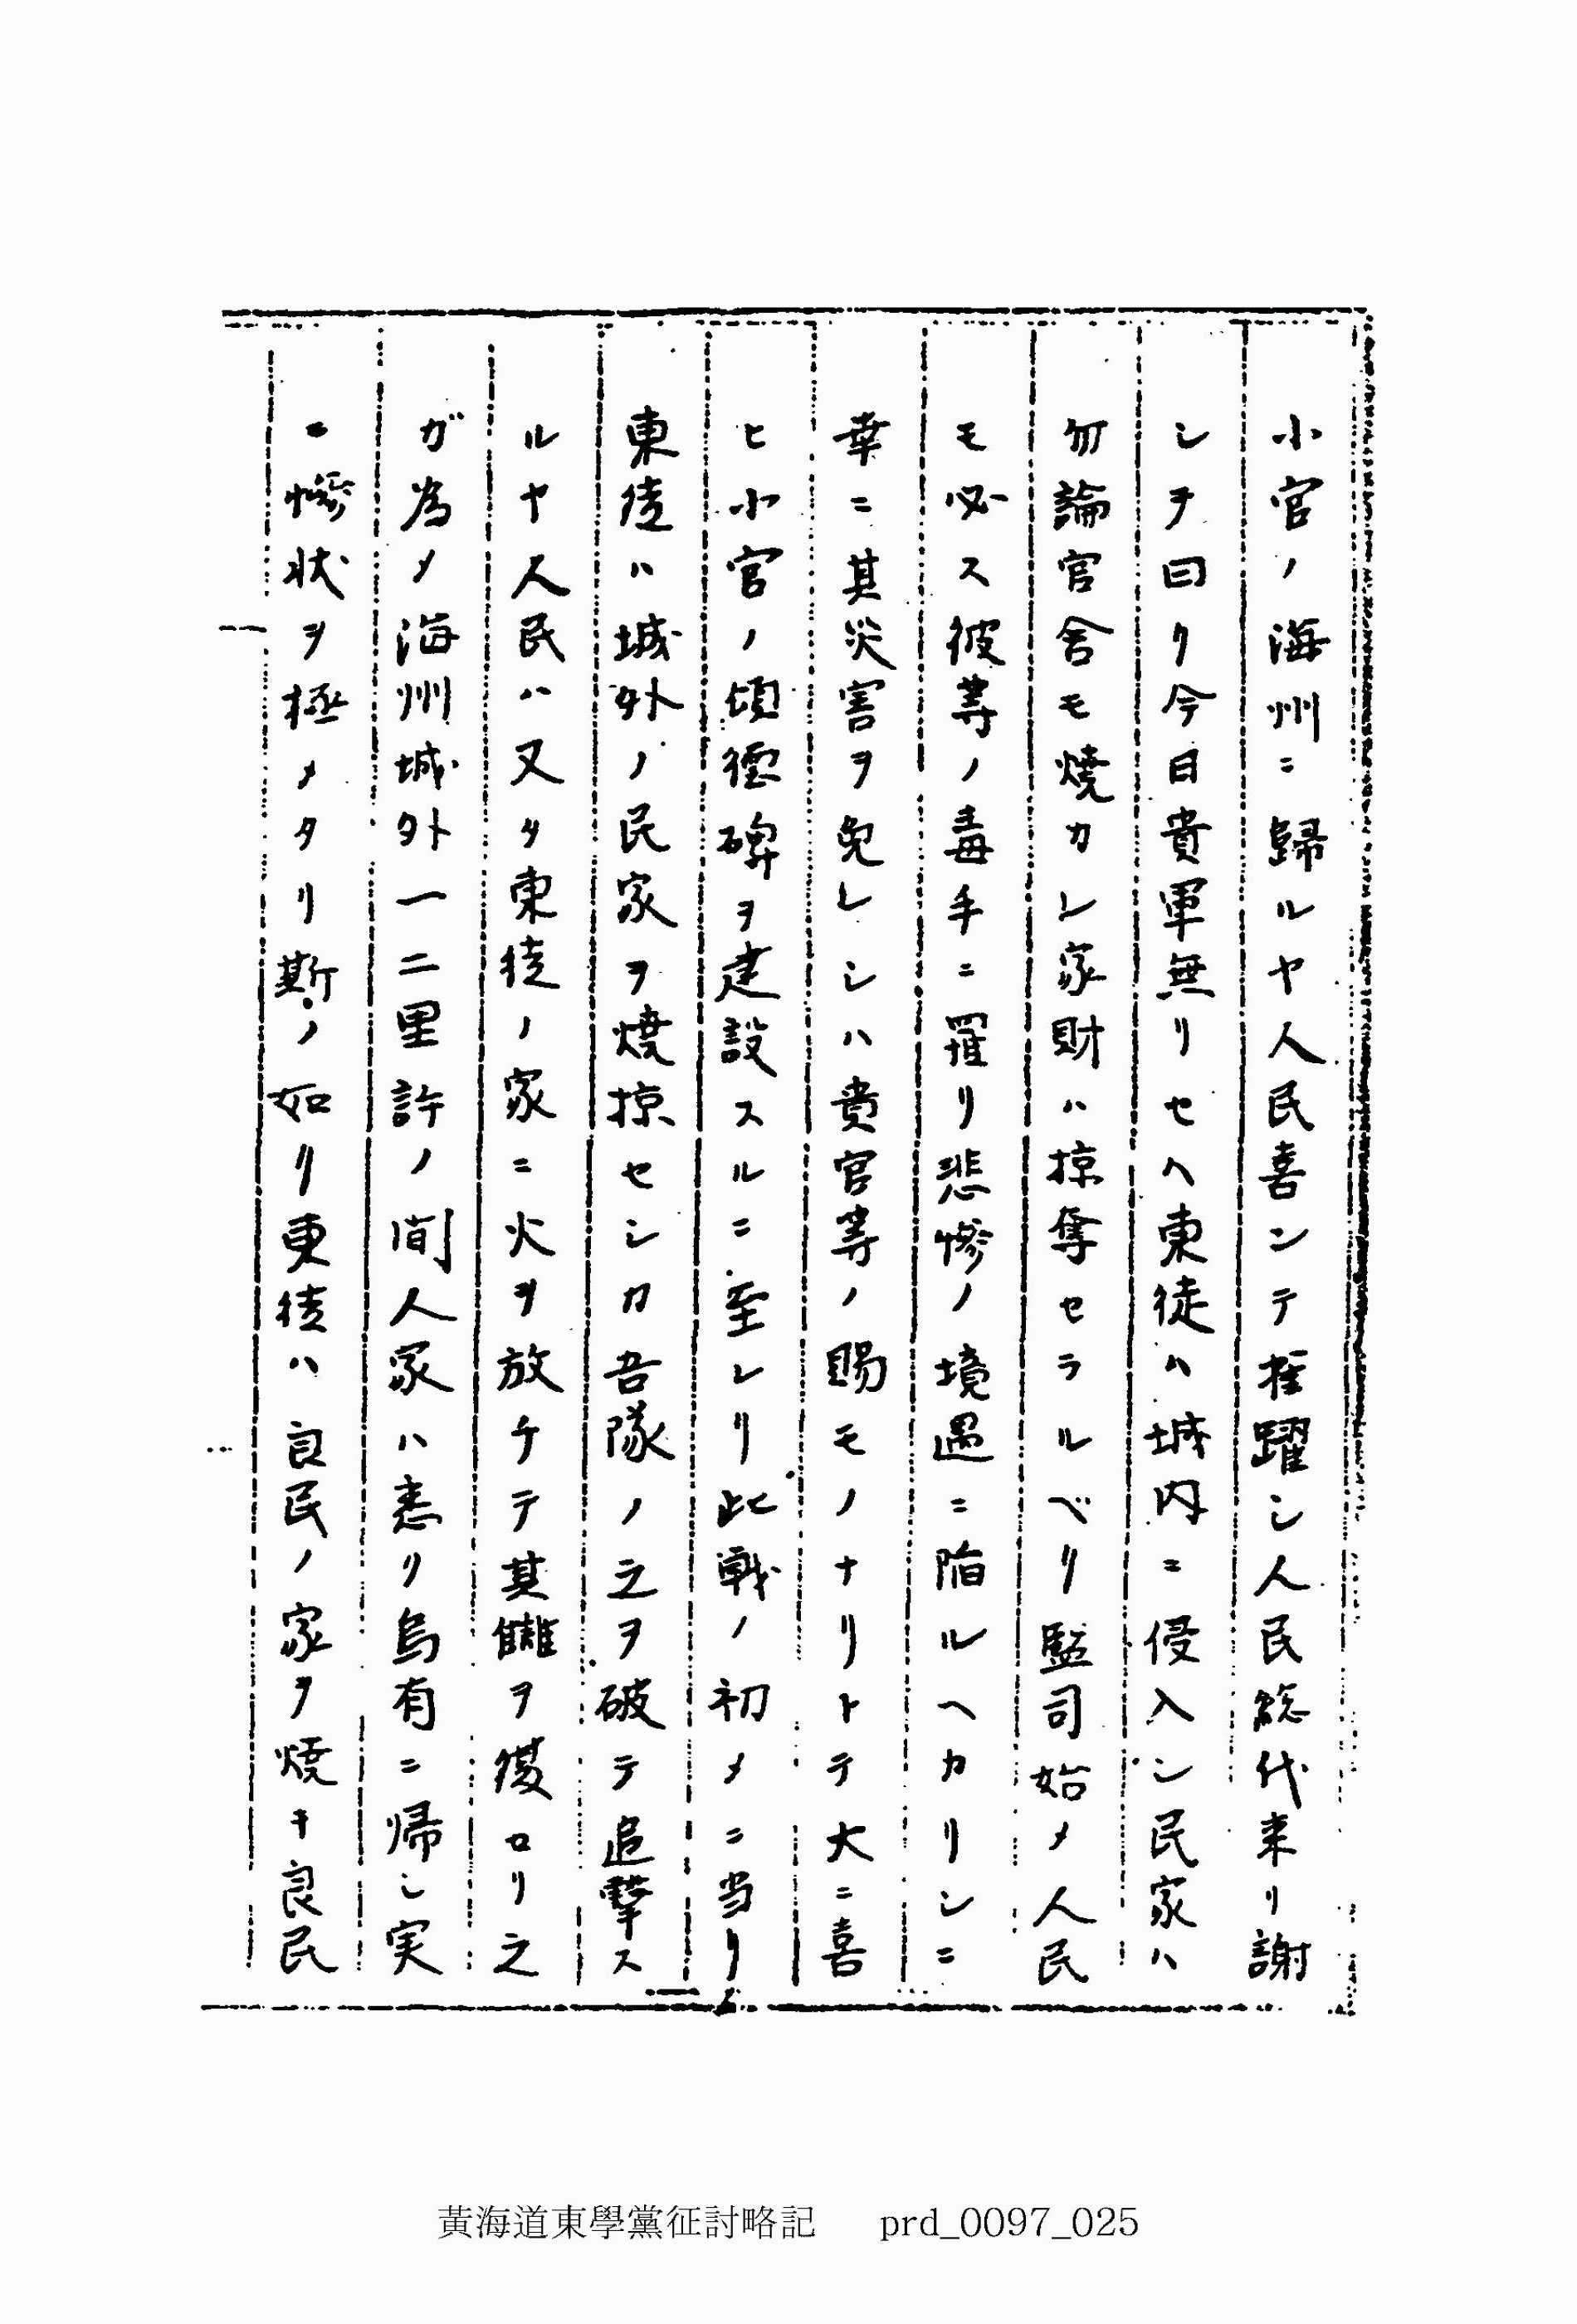 小官ノ海州ニ歸ルヤ人民喜ンテ雀躍シ人民総代来リ謝
シテ曰ク今日貴軍無リセヘ東徒ハ城内ニ侵入シ民家ハ
勿論官舎モ燒カレ家財ハ掠奪セラルベリ監司始メ人民
モ必ス彼等ノ毒手ニ羅リ悲惨ノ境遇ニ陥ルヘカリシニ
幸ニ其災害ヲ免レシハ貴官等ノ賜モノナリトテ大ニ喜
ヒ小官ノ頌徳碑ヲ建設スルニ至レリ此戦ノ初メニ当リ
東徒ハ城外ノ民家ヲ燒掠セシカ吾隊ノ之ヲ破テ追撃ス
ルヤ人民ハ又タ東徒ノ家ニ火ヲ放チテ其讎ヲ復ロリ之
ガ為メ海州城外一二里許ノ間人家ハ悉リ烏有ニ帰シ実
ニ惨状ヲ極メタリ斯ノ如リ東徒ハ良民ノ家ヲ焼キ良民
黃海道東學黨征討略記 prd_0097_025